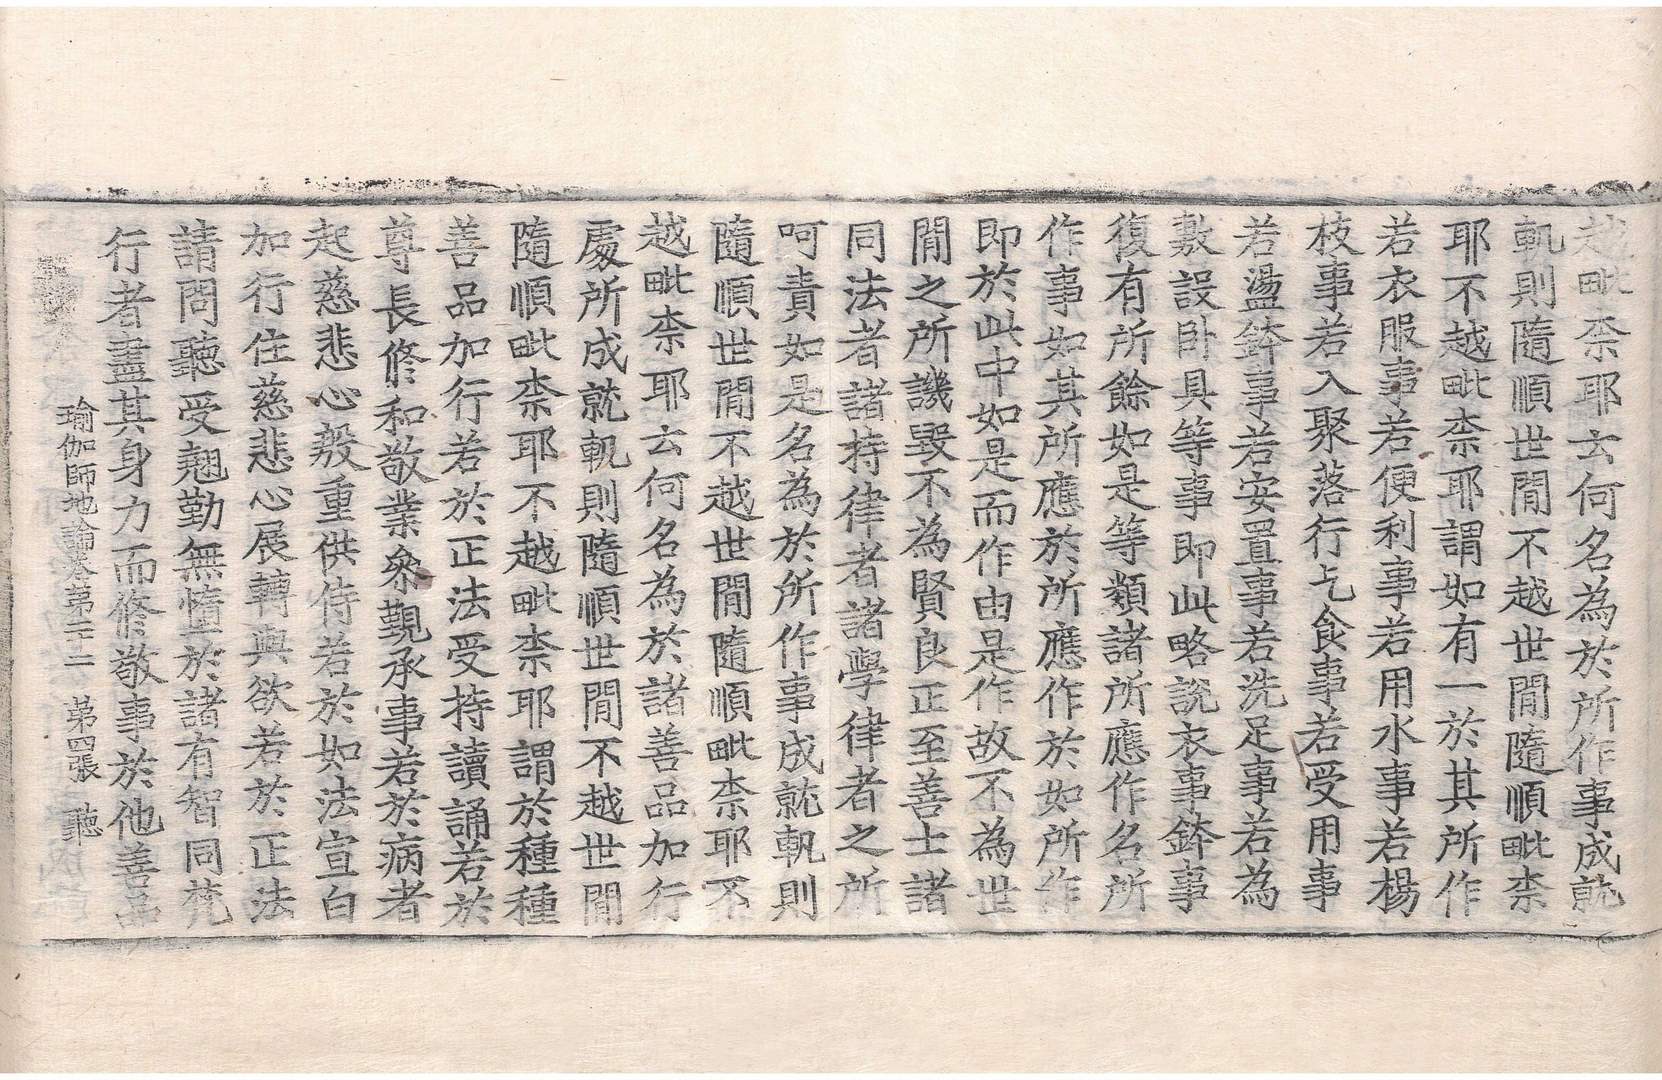 越毗柰耶云何名為於所作事成就
軌則隨順世閒不越世閒隨順毗柰
耶不越毗柰耶謂如有一於其所作
若衣服事若便利事若用水事若楊
枝事若入聚落行乞食事若受用事
若盪鉢事若安置事若洗足事若為
敷設卧具等事即此略說衣事鉢事
復有所餘如是等類諸所應作名所
作事如其所應於所應作於如所作
即於此中如是而作由是作故不為世
閒之所譏毀不為賢良正至善士諸
同法者諸持律者諸學律者之所
呵責如是名為於所作事成就軌則
隨順世閒不越世閒隨順毗柰耶不
越毗柰耶云何名為於諸善品加行
處所成就軌則隨順世閒不越世閒
隨順毗柰耶不越毗柰耶謂於種種
善品加行若於正法受持讀誦若於
尊長修和敬業參覲承事若於病者
起慈悲心殷重供侍若於如法宣白
加行住慈悲心展轉與欲若於正法
請問聽受翹勤無惰於諸有智同梵
行者盡其身力而修敬事於他善品
瑜伽師地論卷第二十二 第四張 聽